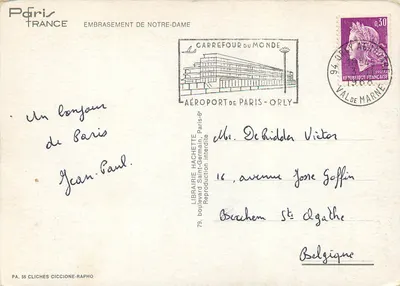 Paris
FRANCE
EMBRASEMENT DE NOTRE-DAME
CARREFOUR DU MONDE
AÉROPORT DE PARIS - ORLY
0,30
RÉPUBLIQUE FRANÇAISE
VAL DE MARNE
Un bonjour
de Paris
Jean-Paul.
LIBRAIRIE HACHETTE
79, boulevard Saint-Germain, Paris-6e
Reproduction interdite
Mr. DeRidder Victor
16, avenue Josse Goffin
Berchem Ste Agathe
Belgique
PA. 36 CLICHÉS CICCIONE-RAPHO